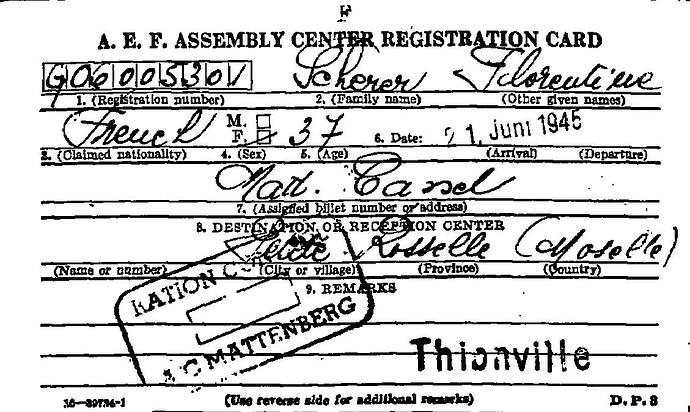 A. E. F. ASSEMBLY CENTER REGISTRATION CARD
G06005301 Scherer Florentine
1. (Registration number) 2. (Family name) (Other given names)
French M. F. 37 6. Date: 21. Juni 1945
3. (Claimed nationality) 4. (Sex) 5. (Age) (Arrival) (Departure)
Cassel
7. (Assigned billet number or address)
8. DESTINATION OR RECEPTION CENTER
Petite Rosselle (Moselle)
(Name or number) (City or village) (Province) (Country)
9. REMARKS
RATION
A C MATTENBERG
Thionville
16—39734-1 (Use reverse side for additional remarks) D. P. 3